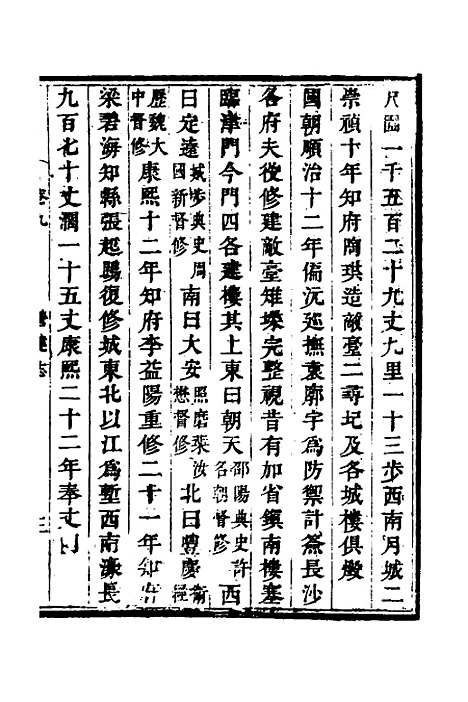 尺圍一千五百二十九丈九里一十三步西南月城二
崇禎十年知府陶珙造敵臺二尋圮及各城樓俱燬
國朝順治十二年偏沅廵撫袁廓宇為防禦計簽長沙
各府夫役修建敵臺雉堞完整視昔有加省鎮南樓塞
臨津門今門四各建樓其上東曰朝天邵陽典史許各朝督修西
曰定遠城步典史周國新督修南曰大安照磨葉汝懋督修北曰豐慶衛經
歷魏大中督修康熙十二年知府李益陽重修二十一年知府
梁碧海知縣張起鵾復修城東北以江為塹西南濠長
九百七十丈濶一十五丈康熙二十二年奉文
卷九
營建志
三